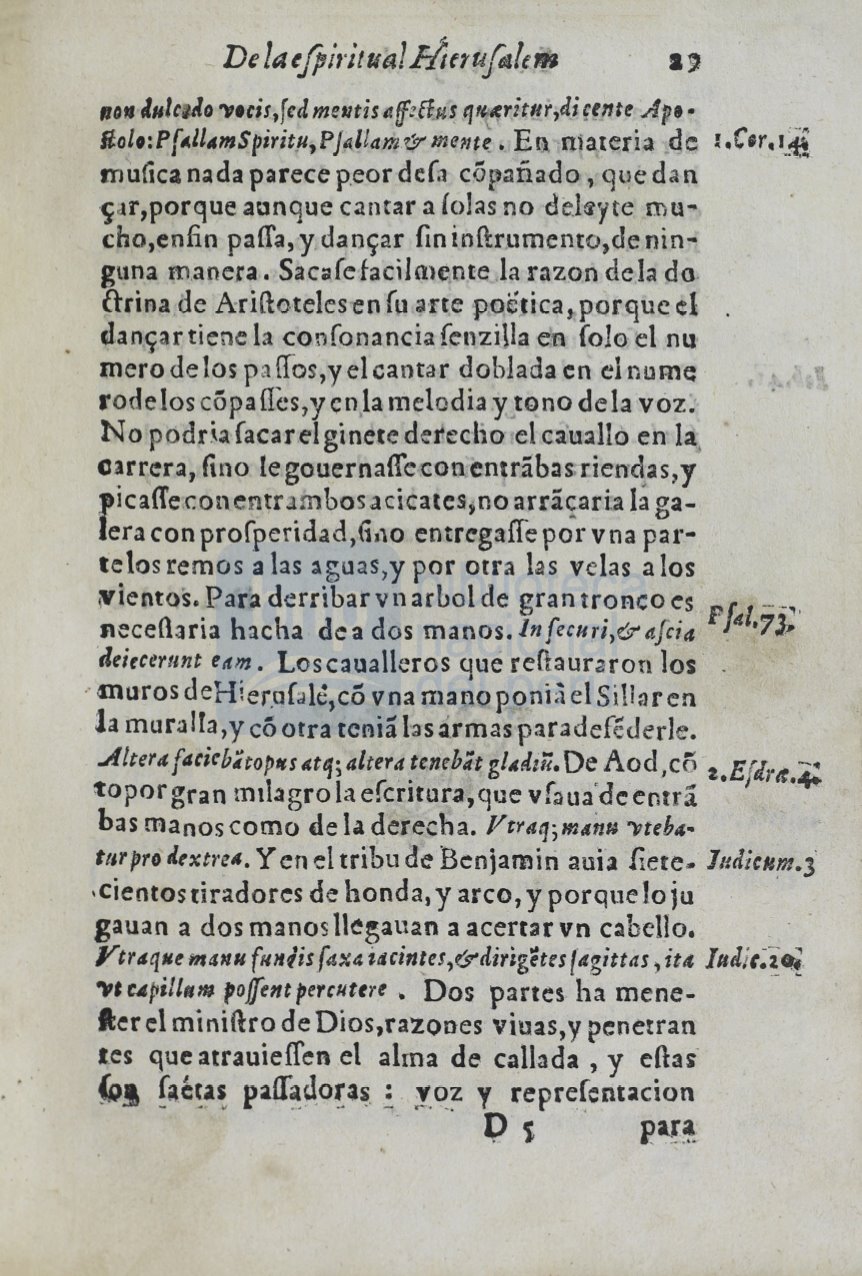 De la eſpiritual Hieruſalem 29
non dulcedo vocis, ſed mentis affectus quæritur, dicente Apo-
ſtolo: Pſallam Spiritu, Pſallam & mente. En materia de 1. Cor. 14
muſica nada parece peor deſa cõpañado, que dan
çar, porque aunque cantar a ſolas no deleyte mu-
cho, enfin paſſa, y dançar ſin inſtrumento, de nin-
guna manera. Sacaſe facilmente la razon de la do
ctrina de Ariſtoteles en ſu arte poëtica, porque el
dançar tiene la conſonancia ſenzilla en ſolo el nu
mero de los paſſos, y el cantar doblada en el nume
ro de los cõpaſſes, y en la melodia y tono de la voz.
No podria ſacar el ginete derecho el cauallo en la
carrera, ſino le gouernaſſe con entrãbas riendas, y
picaſſe con entrambos acicates, no arrãcaria la ga-
lera con proſperidad, ſino entregaſſe por vna par-
te los remos a las aguas, y por otra las velas a los
vientos. Para derribar vn arbol de gran tronco es
neceſſaria hacha de a dos manos. In ſecuri, & aſcia Pſal. 73.
deiecerunt eam. Los caualleros que reſtauraron los
muros de Hieruſalẽ, cõ vna mano poniã el Sillar en
la muralla, y cõ otra teniã las armas para defẽderle.
Altera faciebãt opus atq; altera tenebãt gladiũ. De Aod, cõ 2. Eſdræ. 4.
to por gran milagro la eſcritura, que vſaua de entrã
bas manos como de la derecha. Vtraq; manu vteba-
tur pro dextrea. Y en el tribu de Benjamin auia ſiete- Iudicum. 3
cientos tiradores de honda, y arco, y porque lo ju
gauan a dos manos llegauan a acertar vn cabello.
Vtraque manu fundis ſaxa iacintes, & dirigẽtes ſagittas, ita Iudic. 20.
vt capillum poſſent percutere. Dos partes ha mene-
ſter el miniſtro de Dios, razones viuas, y penetran
tes que atrauieſſen el alma de callada, y eſtas
ſon ſaétas paſſadoras: voz y repreſentacion
D 5 para